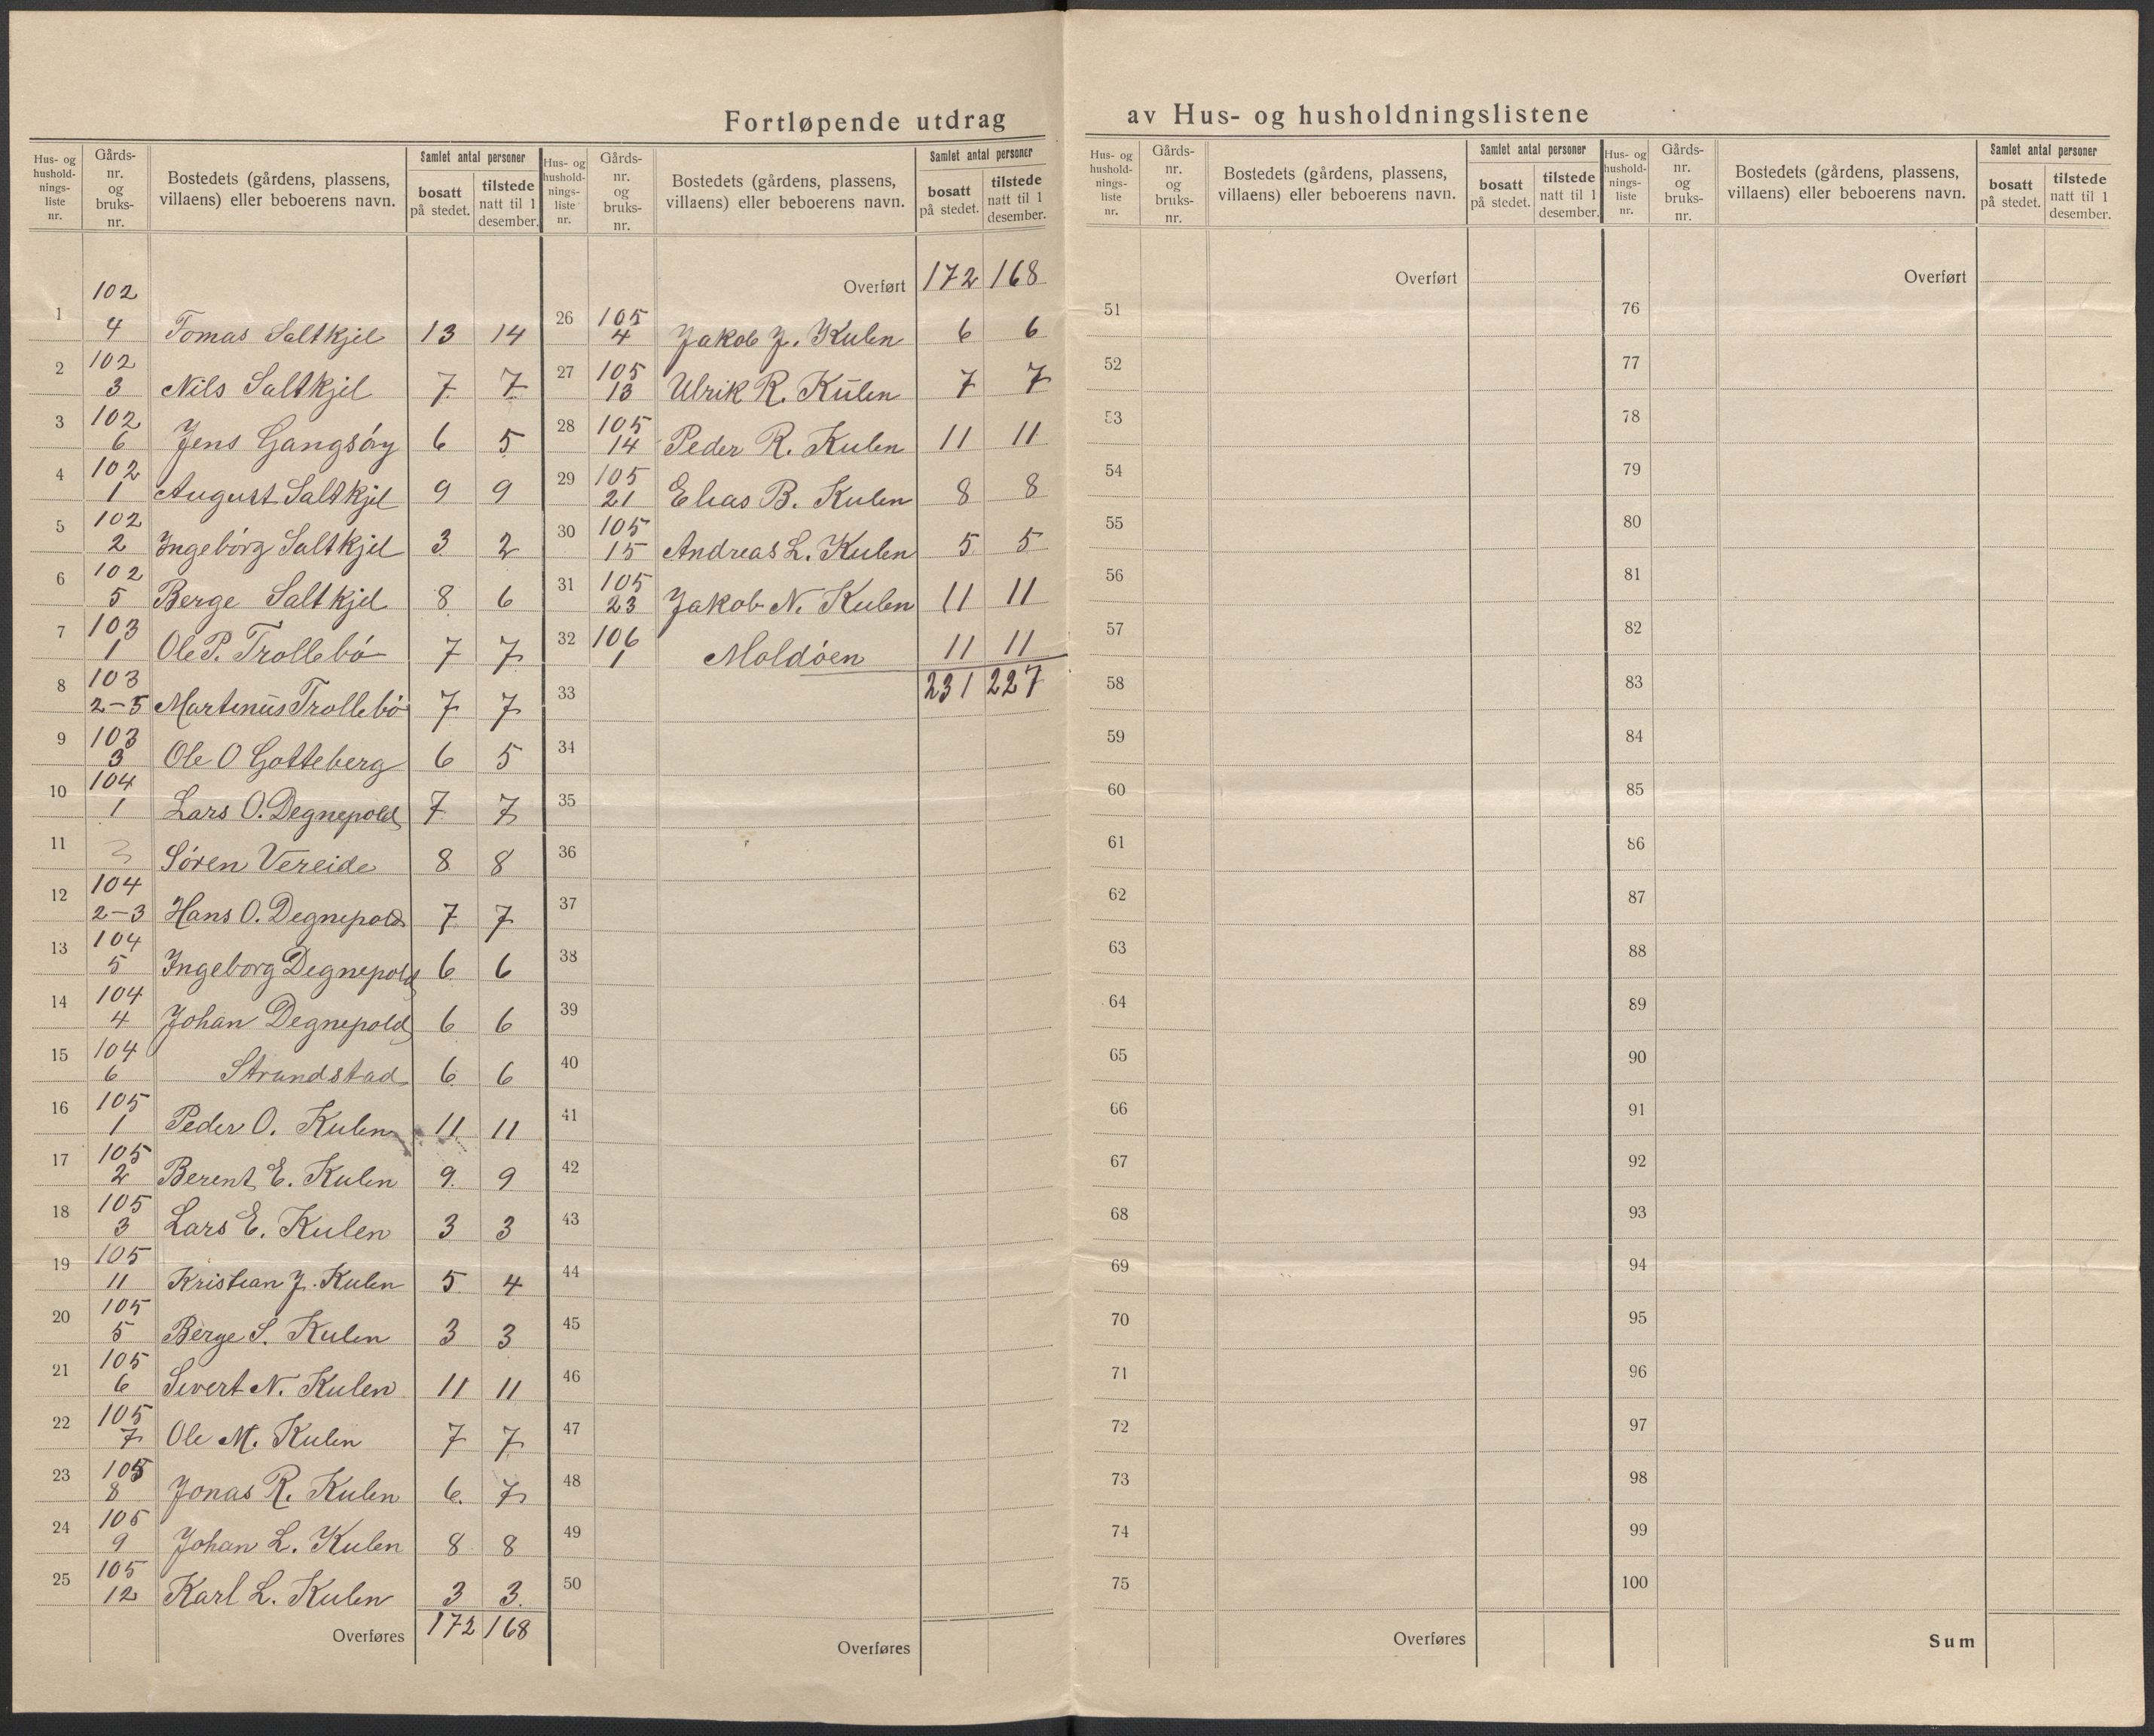 Fortløpende utdrag av Hus- og husholdningslistene
Hus- og hushold-nings-liste nr. | Gårds-nr. og bruks-nr. | Bostedets (gårdens, plassens, villaens) eller beboerens navn. | Samlet antal personer | bosatt på stedet. | tilstede natt til 1 desember.
1 | 102 4 | Tomas Saltkjel | 13 | 14
2 | 102 3 | Nils Saltkjel | 7 | 7
3 | 102 6 | Jens Gangsöy | 6 | 5
4 | 102 1 | August Saltkjel | 9 | 9
5 | 102 2 | Ingebörg Saltkjel | 3 | 2
6 | 102 5 | Berge Saltkjel | 8 | 6
7 | 103 1 | Ole P. Trollebö | 7 | 7
8 | 103 2-5 | Martinus Trollebö | 7 | 7
9 | 103 3 | Ole O Gotteberg | 6 | 5
10 | 104 1 | Lars O. Degnepold | 7 | 7
11 | Sören Vereide | 8 | 8
12 | 104 2-3 | Hans O. Degnepold | 7 | 7
13 | 104 5 | Ingeborg Degnepold | 6 | 6
14 | 104 4 | Johan Degnepold | 6 | 6
15 | 104 6 | Strandstad | 6 | 6
16 | 105 1 | Peder O. Kulen | 11 | 11
17 | 105 2 | Berent E. Kulen | 9 | 9
18 | 105 3 | Lars E. Kulen | 3 | 3
19 | 105 11 | Kristian J. Kulen | 5 | 4
20 | 105 5 | Berge S. Kulen | 3 | 3
21 | 105 6 | Sivert N. Kulen | 11 | 11
22 | 105 7 | Ole M. Kulen | 7 | 7
23 | 105 8 | Jonas R. Kulen | 6 | 7
24 | 105 9 | Johan L. Kulen | 8 | 8
25 | 105 12 | Karl L. Kulen | 3 | 3
Overføres | 172 | 168
Hus- og hushold-nings-liste nr. | Gårds-nr. og bruks-nr. | Bostedets (gårdens, plassens, villaens) eller beboerens navn. | Samlet antal personer | bosatt på stedet. | tilstede natt til 1 desember.
Overført | 172 | 168
26 | 105 4 | Jakob J. Kulen | 6 | 6
27 | 105 13 | Ulrik R. Kulen | 7 | 7
28 | 105 14 | Peder R. Kulen | 11 | 11
29 | 105 21 | Elias B. Kulen | 8 | 8
30 | 105 15 | Andreas L. Kulen | 5 | 5
31 | 105 23 | Jakob N. Kulen | 11 | 11
32 | 106 1 | Moldöen | 11 | 11
33 | 231 | 227
34
35
36
37
38
39
40
41
42
43
44
45
46
47
48
49
50
Overføres
Hus- og hushold-nings-liste nr. | Gårds-nr. og bruks-nr. | Bostedets (gårdens, plassens, villaens) eller beboerens navn. | Samlet antal personer | bosatt på stedet. | tilstede natt til 1 desember.
Overført
51
52
53
54
55
56
57
58
59
60
61
62
63
64
65
66
67
68
69
70
71
72
73
74
75
Overføres
Hus- og hushold-nings-liste nr. | Gårds-nr. og bruks-nr. | Bostedets (gårdens, plassens, villaens) eller beboerens navn. | Samlet antal personer | bosatt på stedet. | tilstede natt til 1 desember.
Overført
76
77
78
79
80
81
82
83
84
85
86
87
88
89
90
91
92
93
94
95
96
97
98
99
100
Sum